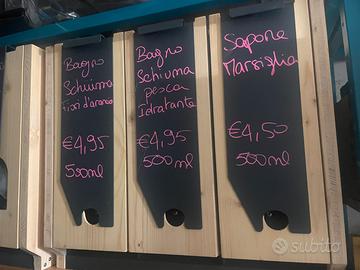 Bagno
Schiuma
Fiori d'arancio
€4,95
500ml
Bagno
Schiuma
pesca
Idratante
€4,95
500ml
Sapone
Marsiglia
€4,50
500ml
subito